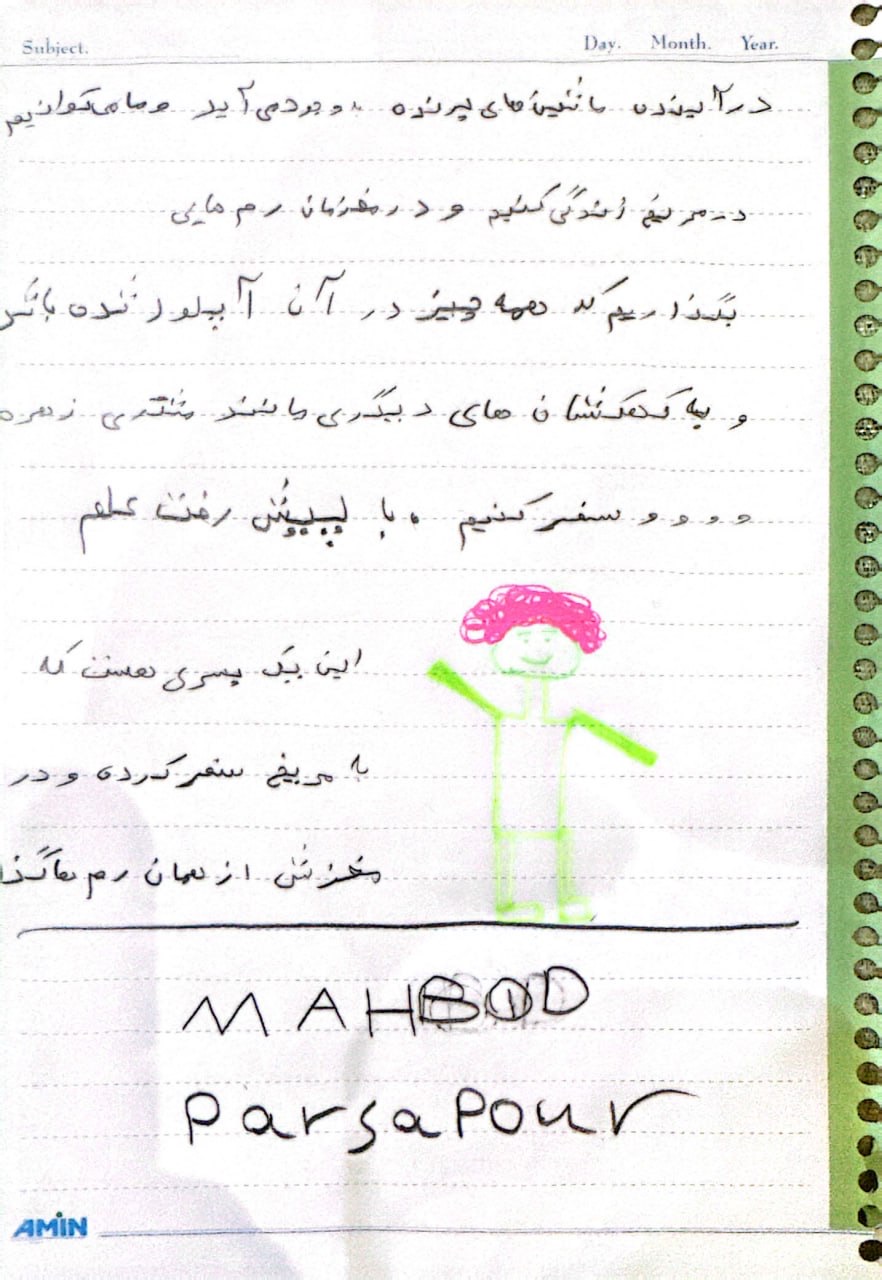 Subject. Day. Month. Year.
در آینده ماشین های پرنده بوجود می آید و ما می توانیم
در مریخ زندگی کنیم و در مغزمان رم هایی
بگذاریم که همه چیز در آن آپلود شده باشد
و به کهکشان های دیگری مانند مشتری زهره
و و و و سفر کنیم . با پیش رفت علم
این یک پسری هست که
به مریخ سفر کرده و در
مغزش از همان رم ها گذا
MAHBOD
ParsaPour
AMIN